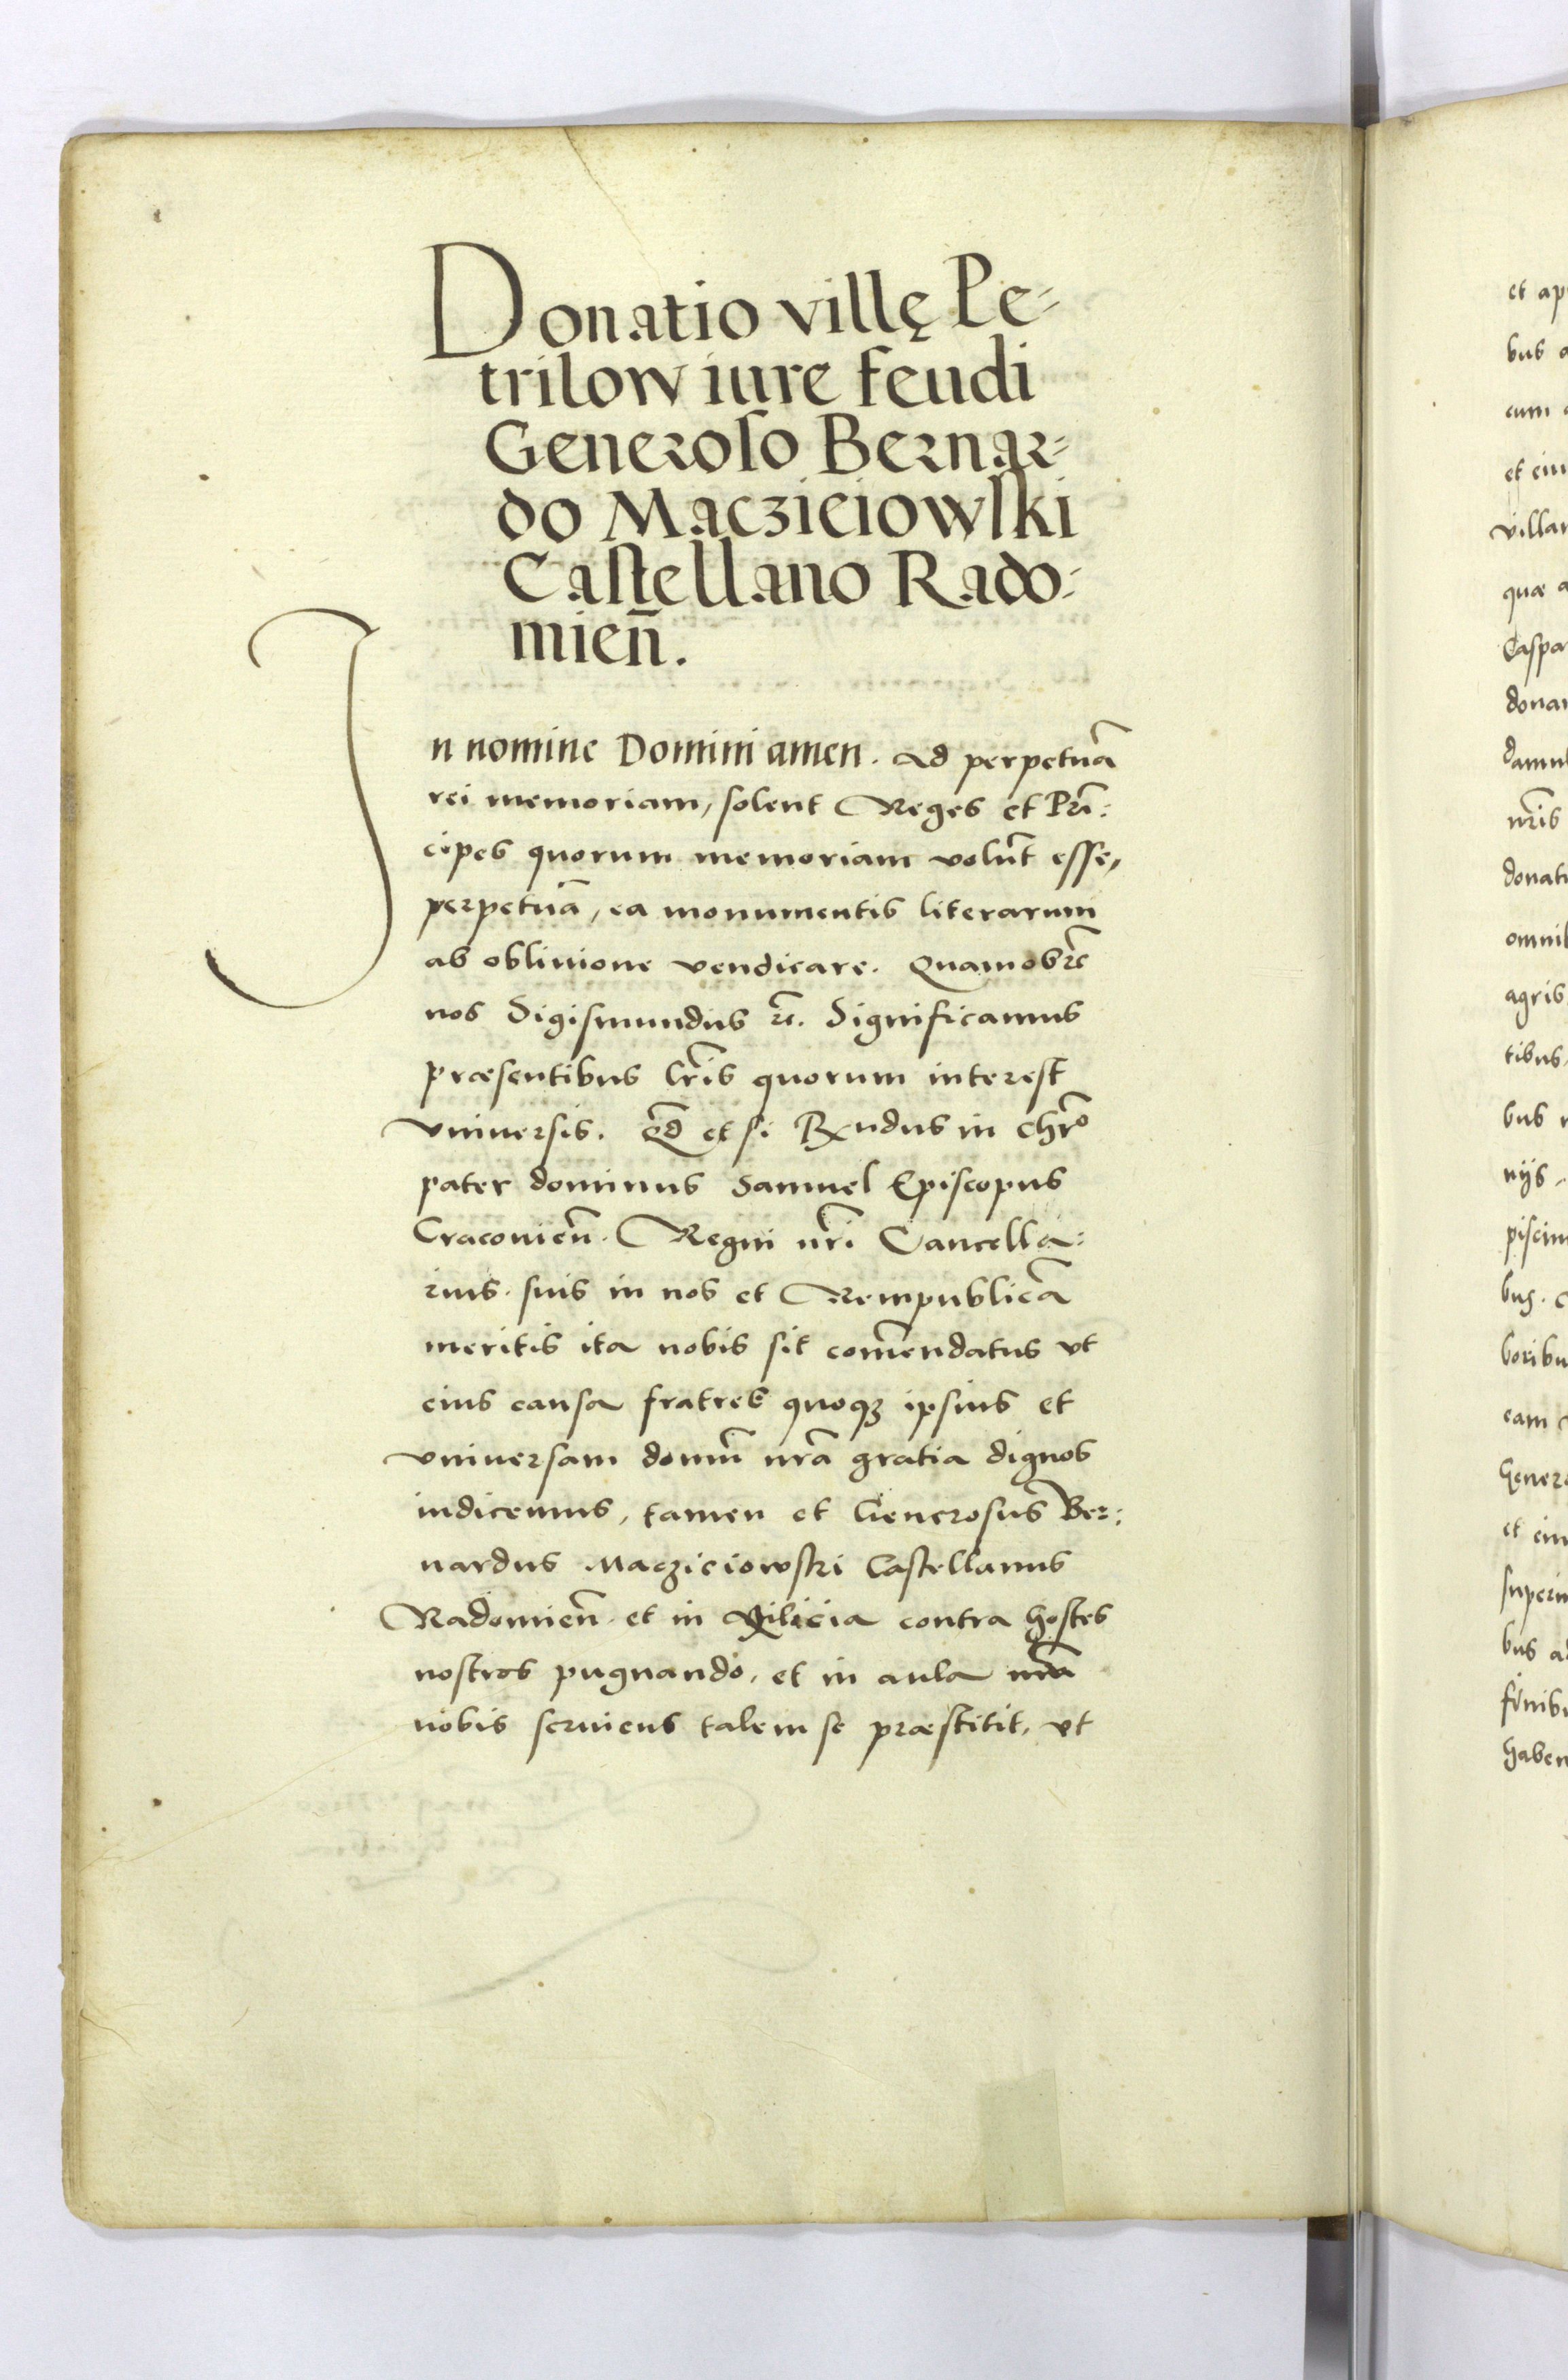 Donatio villę Pe-
trilow iure feudi
Generoso Bernar-
do Macziciowski
Castellano Rado-
mien̄.
In nomine Domini amen. Ad perpetuā
rei memoriam, solent Reges et Prī:
cipes quorum memoriam volūt esse,
perpetuā, ea monumentis literarum
ab obliuione vendicare. Quamobrē
nos Sigismundus r̄c. Significamus
præsentibus lr̄is quorum interest
vniuersis. qd̄ et si Rx̄ndus in chr̄o
pater dominus Samuel Episcopus
Cracouien̄. Regni nr̄i Cancella:
rius. suis in nos et Rempublicā
meritis ita nobis sit com̄endatus vt
eius causa fratres quoqꝫ ipsius et
vniuersam domū nr̄a gratia dignos
iudicemus, tamen et Generosus Ber:
nardus Macziciowski Castellanus
Radomien̄. et in contra hostes
nostros pugnando, et in aula nr̄a
nobis seruiens talem se præstitit, vt
et ap
bus a
cum
et eiu
villam
quæ a
Caspa
donau
damu
nr̄is
donat
omnib
agris
tibus
bus
nijs.
piscin
bus. c
boribu
eam
Gener
et eiu
superin
bus a
finib
haben